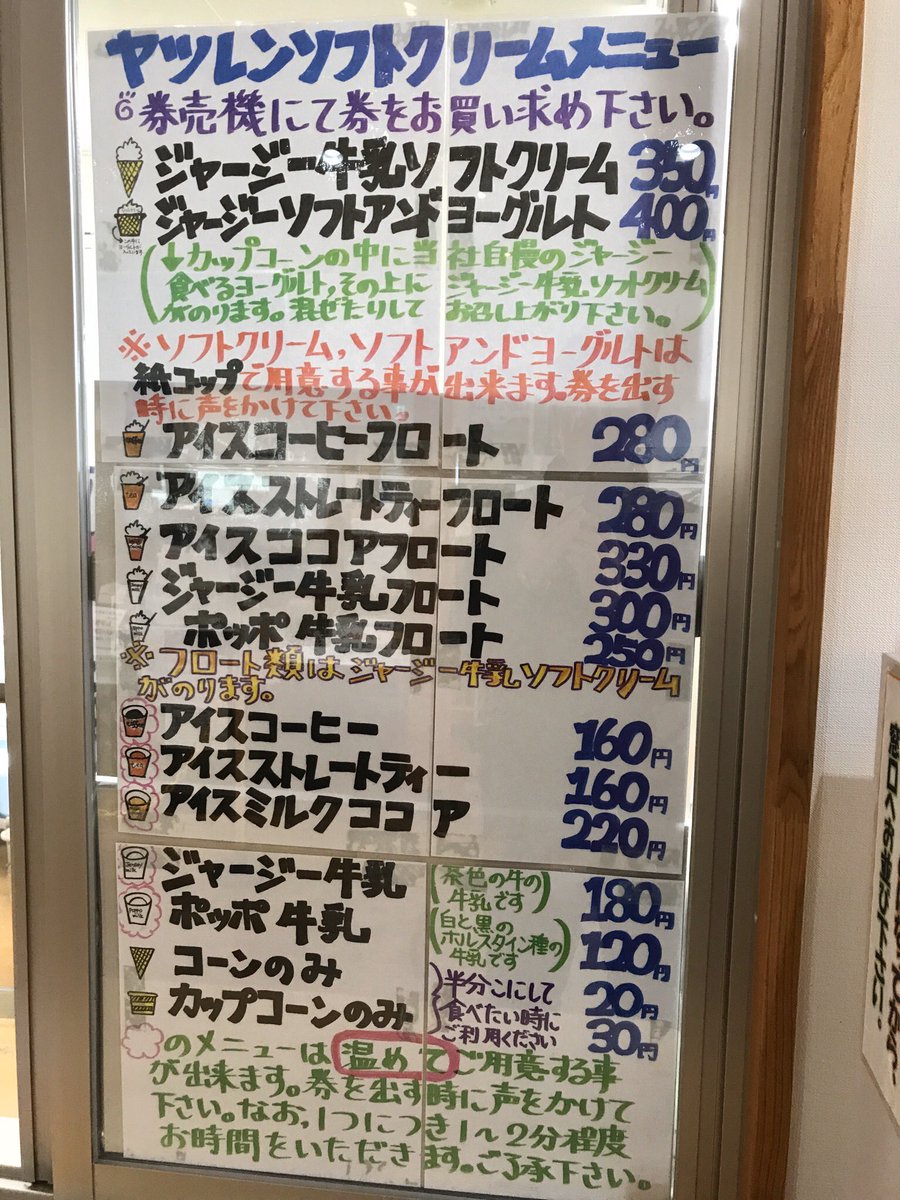 ヤツレンソフトクリームメニュー
券売機にて券をお買い求め下さい。
ジャージー牛乳ソフトクリーム 350円
ジャージーソフトアンドヨーグルト 400円
(↓カップコーンの中に当社自慢のジャージー
食べるヨーグルト,その上にジャージー牛乳ソフトクリーム
がのります。混ぜたりしてお召し上がり下さい。)
※ソフトクリーム,ソフトアンドヨーグルトは
紙コップで用意する事が出来ます。券を出す
時に声をかけて下さい。
アイスコーヒーフロート 280円
アイスストレートティーフロート 280円
アイスココアフロート 330円
ジャージー牛乳フロート 300円
ポッポ牛乳フロート 250円
※フロート類はジャージー牛乳ソフトクリーム
がのります。
アイスコーヒー 160円
アイスストレートティー 160円
アイスミルクココア 220円
ジャージー牛乳 (茶色の牛の牛乳です) 180円
ポッポ牛乳 (白と黒のホルスタイン種の牛乳です) 120円
コーンのみ 20円
カップコーンのみ 30円
半分こにして
食べたい時に
ご利用ください
のメニューは温めてご用意する事
が出来ます。券を出す時に声をかけて
下さい。なお,1つにつき1〜2分程度
お時間をいただきます。ご了承下さい。